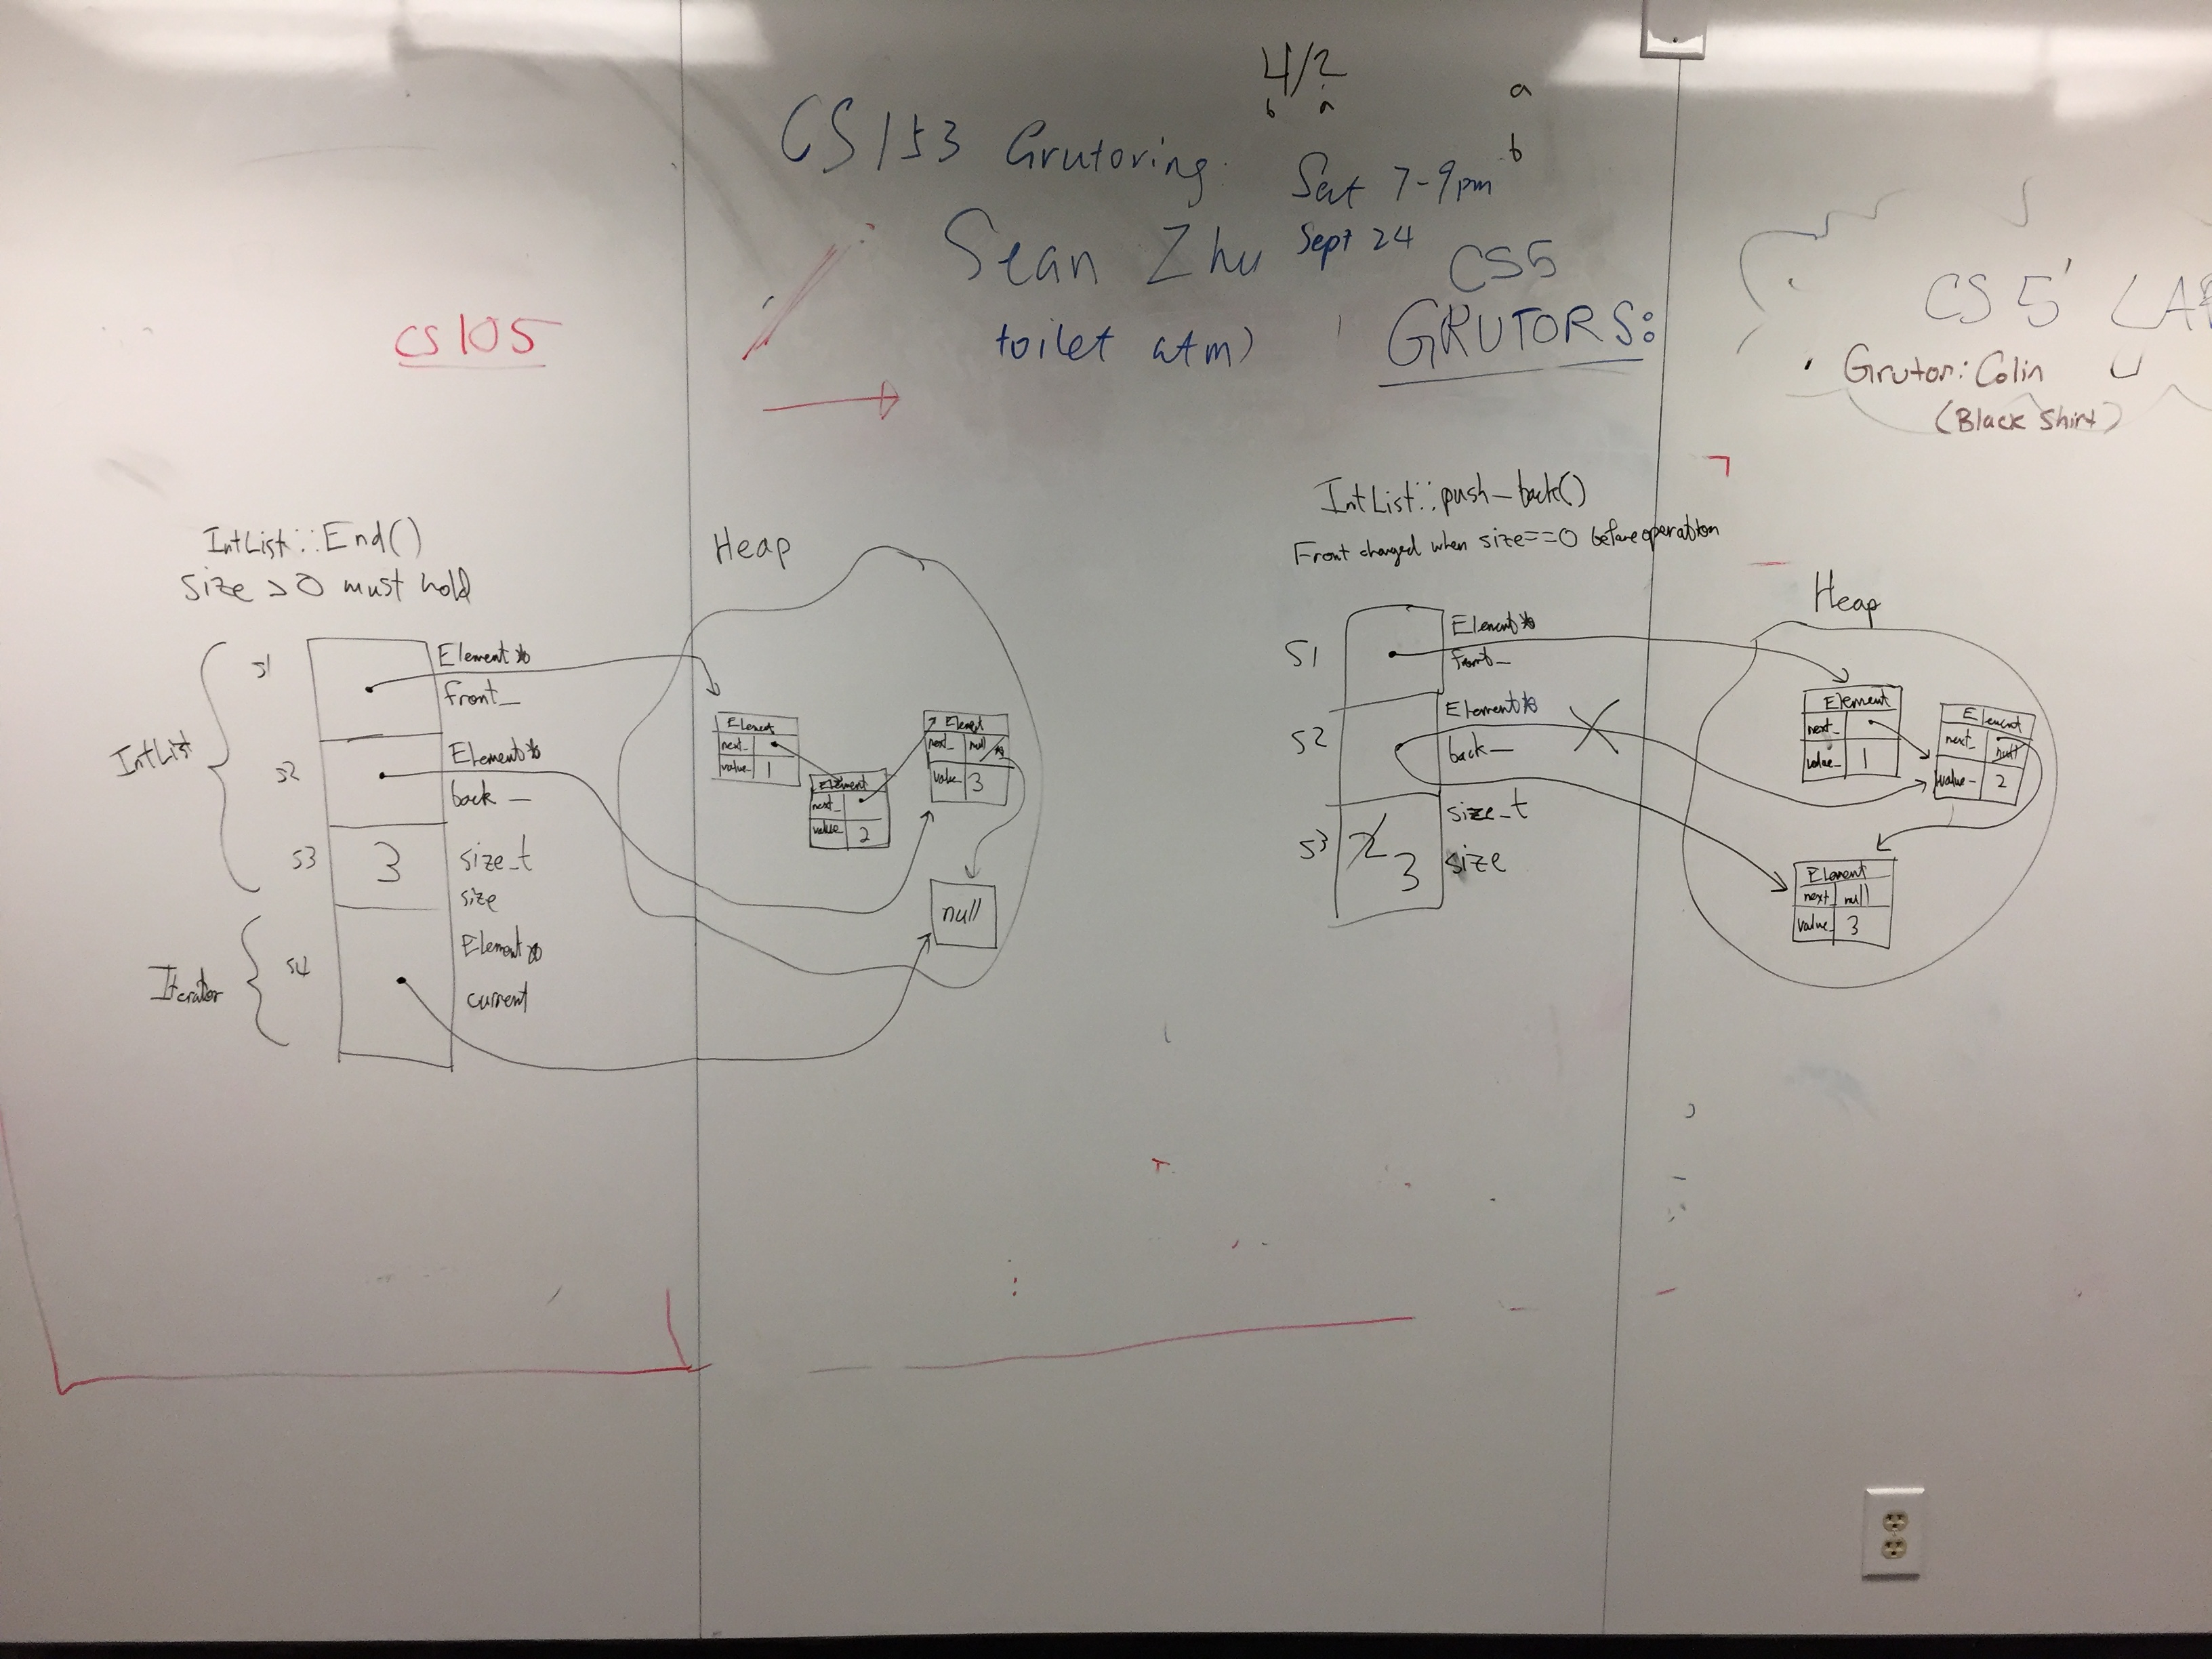 4/2
b a
a
b
CS153 Grutoring.
Sat 7-9pm
Sean Zhu
Sept 24
toilet atm)
CS5
GRUTORS:
CS 5
Grutor: Colin
(Black Shirt)
CS105
IntList::End()
Size > 0 must hold
Heap
IntList
S1
Element*
front_
S2
Element*
back_
S3
3
size_t
size
Iterator
S4
Element*
current
Element
next_
value_ 1
Element
next_
value_ 2
Element
next_ null
value_ 3
null
IntList::push_back()
Front changed when size==0 before operation
Heap
S1
Element*
front_
S2
Element*
back_
S3
2 3
size_t
size
Element
next_
value_ 1
Element
next_ null
value_ 2
Element
next_ null
value_ 3